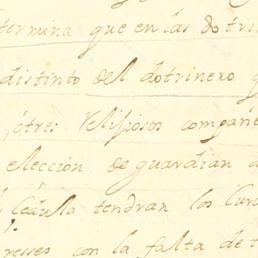 termina que en las dotri
distinto del dotrinero q
ótres Religiosos compañe
elección de guardian
Cedula tendran los Cur
resses con la falta de